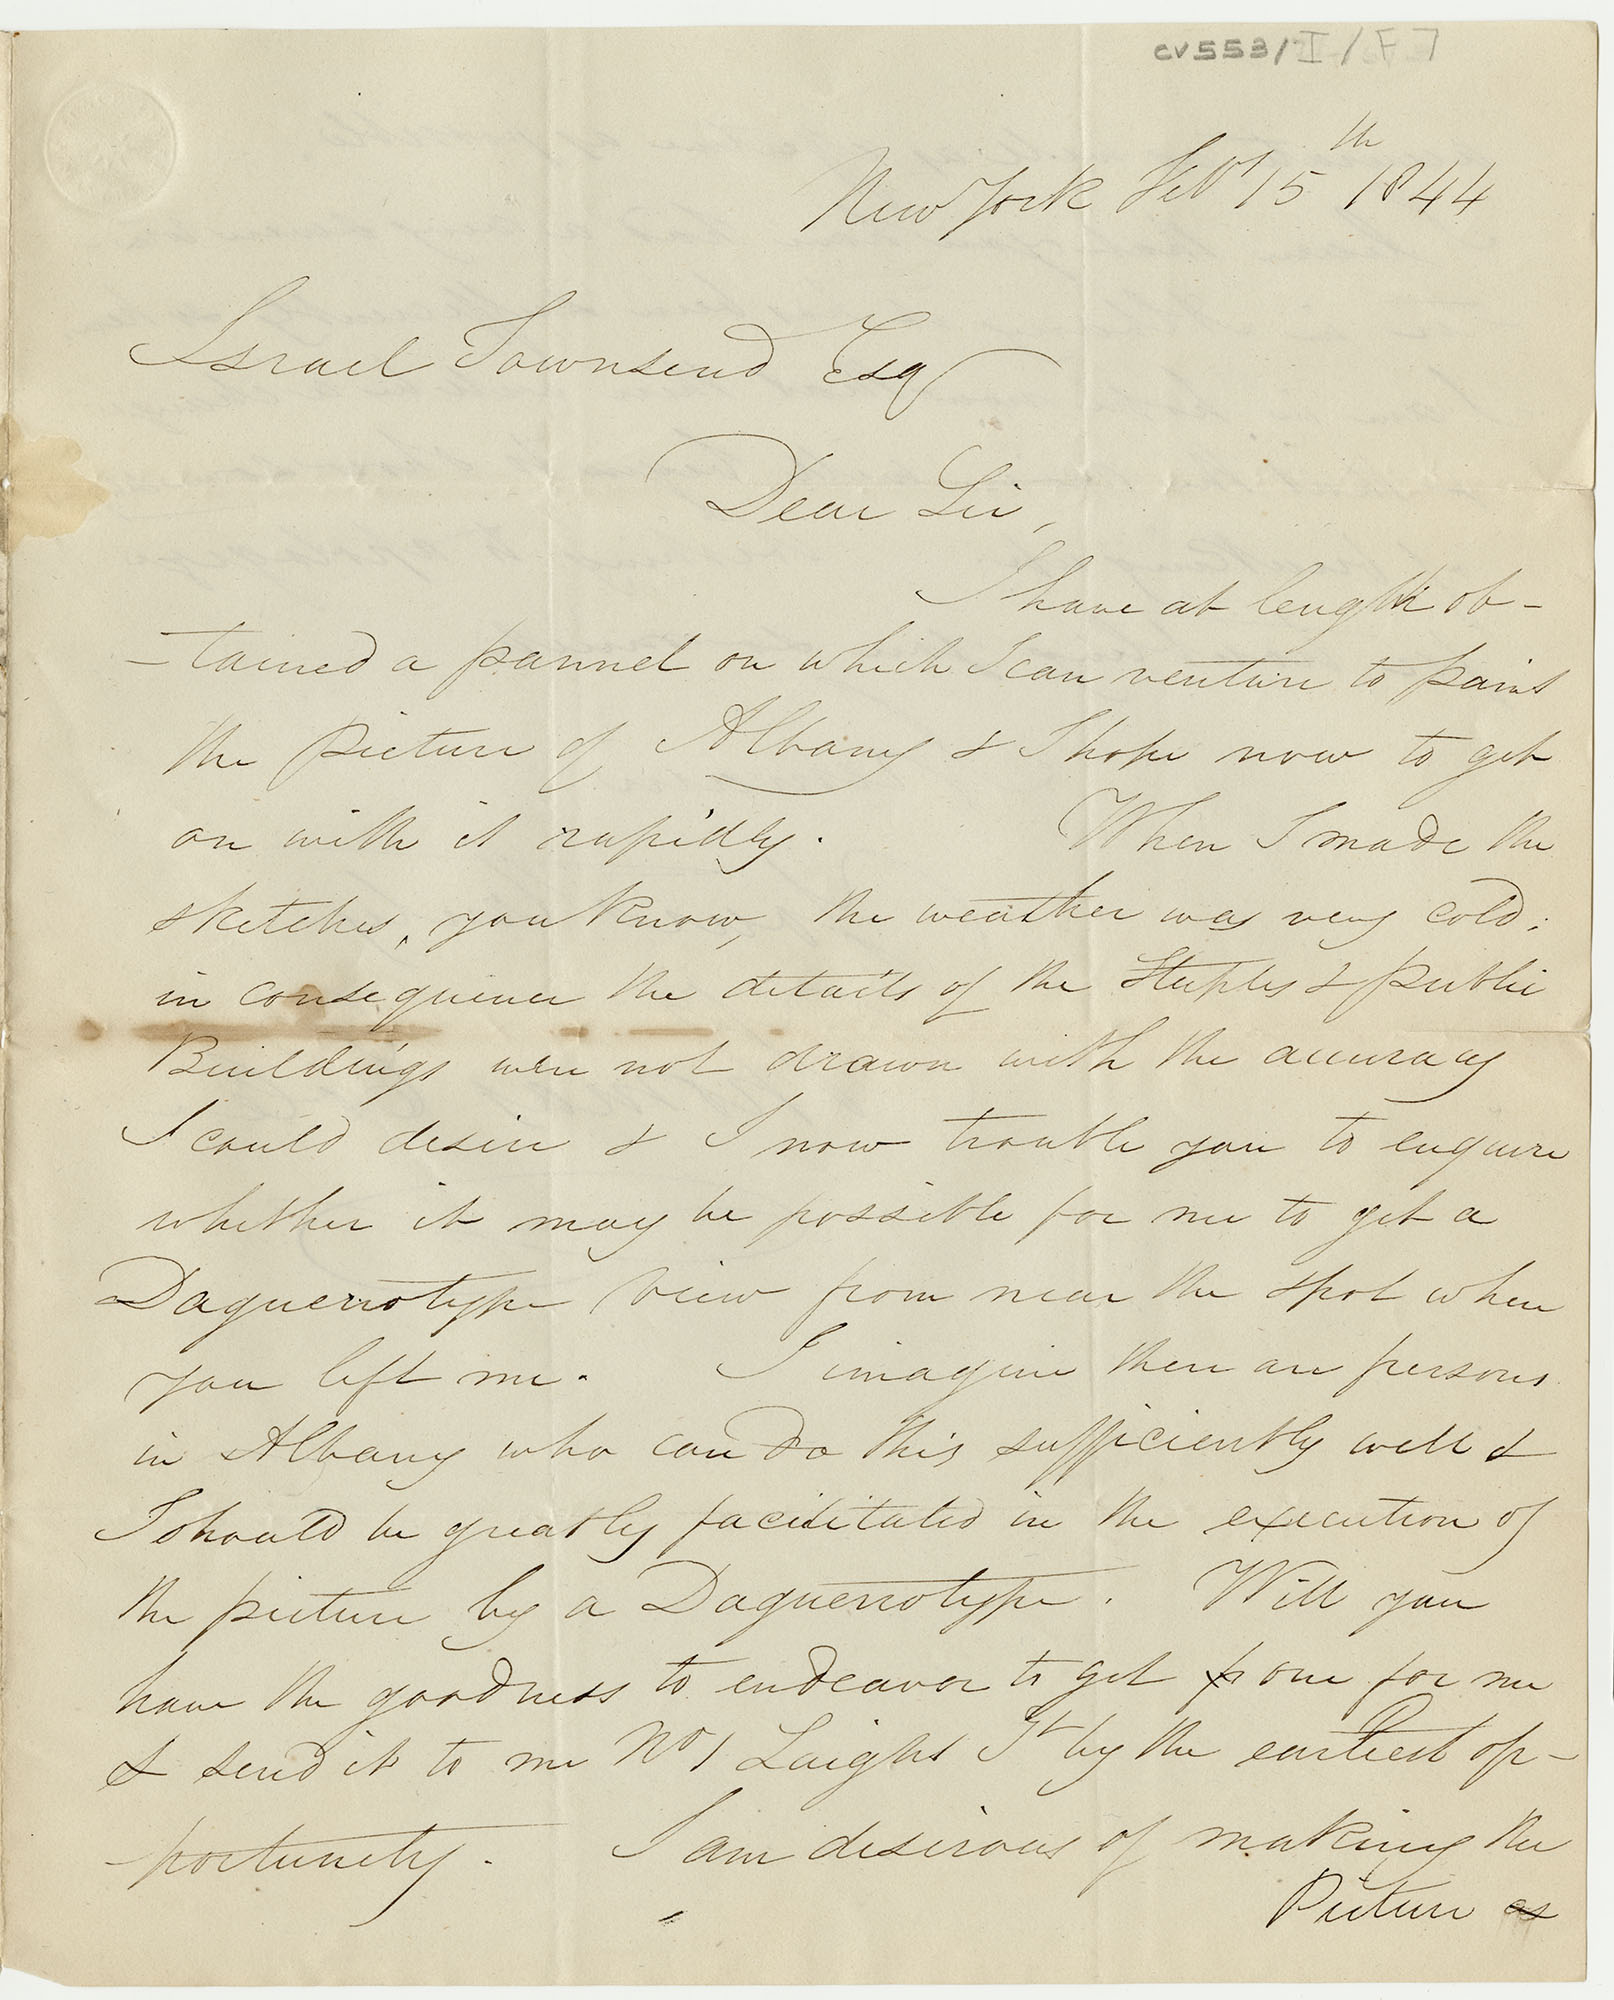 CV553/I/F7
New York Feby 15th 1844
Israel Townsend Esq
Dear Sir,
I have at length ob-
-tained a pannel on which I can venture to paint
the picture of Albany & I hope now to get
on with it rapidly. When I made the
sketches, you know, the weather was very cold;
in consequence the details of the Steeples & public
Buildings were not drawn with the accuracy
I could desire & I now trouble you to enquire
whether it may be possible for me to get a
Daguerrotype view from near the spot where
you left me. I imagine there are persons
in Albany who can do this sufficiently well &
I should be greatly facilitated in the execution of
the picture by a Daguerrotype. Will you
have the goodness to endeavor to get one for me
& send it to me No 1 Laight St by the earliest op-
-portunity. I am desirous of making the
Picture as